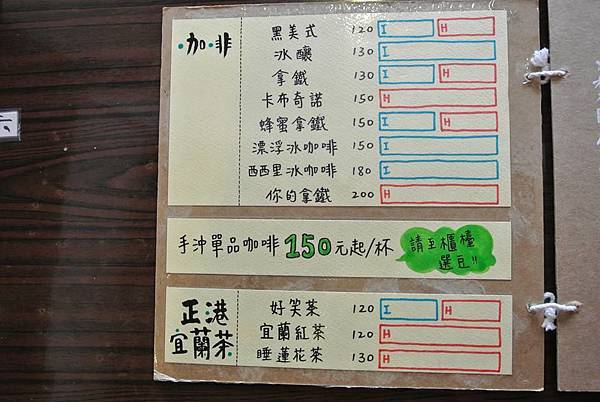 咖·非
黑美式 120 I H
冰釀 130 I
拿鐵 130 I H
卡布奇諾 150 H
蜂蜜拿鐵 150 I H
漂浮冰咖啡 150 I
西西里冰咖啡 180 I
你的拿鐵 200 H
手沖單品咖啡 150元起/杯
請至櫃檯
選豆!!
正港
宜蘭茶
好笑茶 120 I H
宜蘭紅茶 120 H
睡蓮花茶 130 H